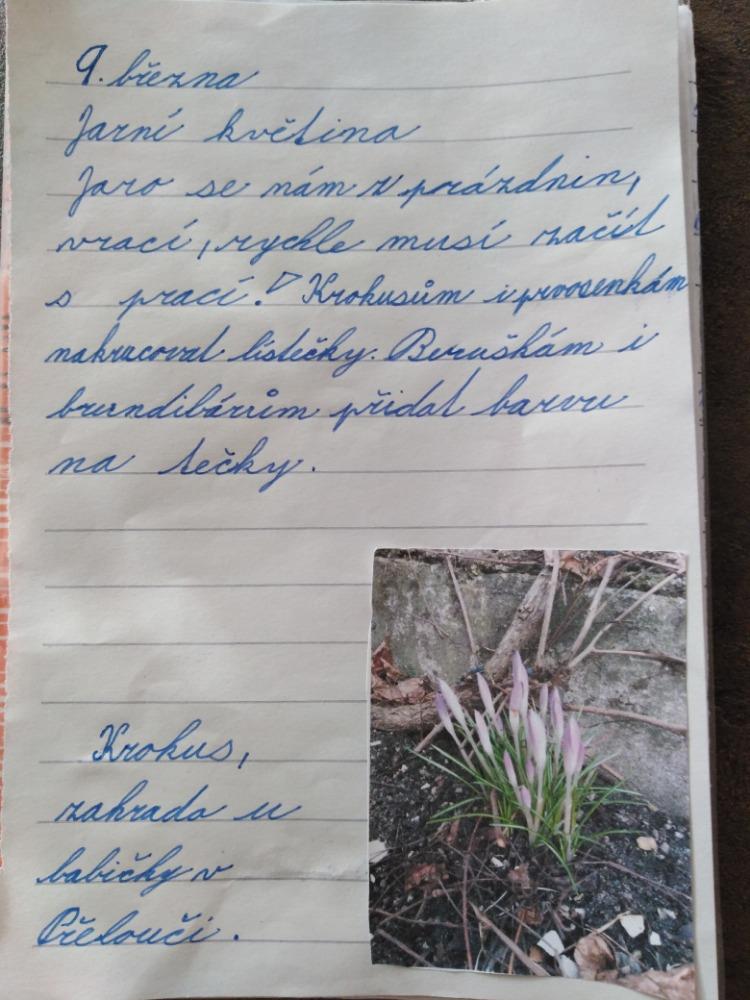 9. března
Jarní květina
Jaro se nám z prázdnin,
vrací, rychle musí začít
s prací! Krokusům i prvosenkám
nakrucovat lístečky. Beruškám i
brundibárům přidat barvu
na tečky.
Krokus,
zahrada u
babičky v
Přelouči.